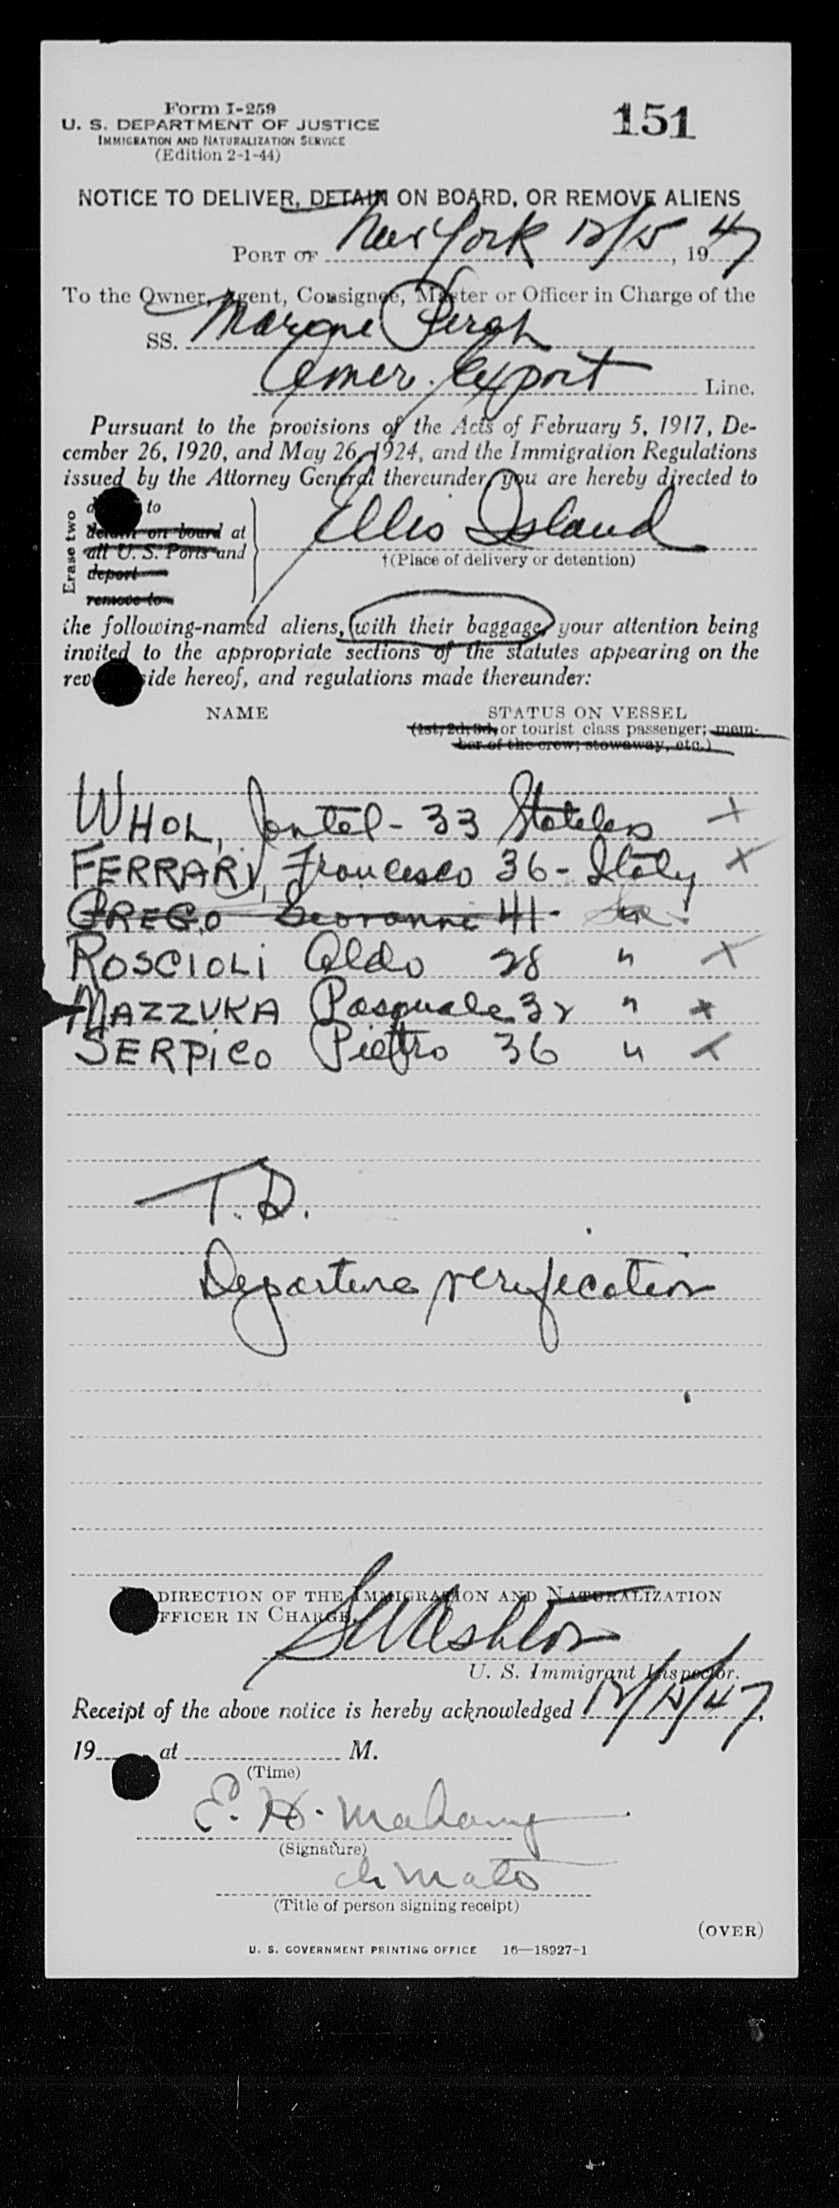 Form I-259
U. S. DEPARTMENT OF JUSTICE
IMMIGRATION AND NATURALIZATION SERVICE
(Edition 2-1-44)
151
NOTICE TO DELIVER, DETAIN ON BOARD, OR REMOVE ALIENS
PORT OF New York 12/15, 1947
To the Owner, Agent, Consignee, Master or Officer in Charge of the
SS. Marine Perch
Amer. Export Line.
Pursuant to the provisions of the Acts of February 5, 1917, De-
cember 26, 1920, and May 26, 1924, and the Immigration Regulations
issued by the Attorney General thereunder, you are hereby directed to
Erase two
to
detain on board at
all U. S. Ports and
deport
remove to
Ellis Island
†(Place of delivery or detention)
the following-named aliens, with their baggage, your attention being
invited to the appropriate sections of the statutes appearing on the
side hereof, and regulations made thereunder:
NAME STATUS ON VESSEL
(1st, 2d, 3d, or tourist class passenger; mem-
ber of the crew; stowaway, etc.)
WHOL, Jontel - 33 Stateless X
FERRARI, Francesco 36 - Italy X
GREGO Geovanni 41 - "
ROSCIOLI Aldo 28 " X
MAZZUKA Pasquale 32 " X
SERPICO Pietro 36 " X
T. D.
Departure verification
DIRECTION OF THE IMMIGRATION AND NATURALIZATION
OFFICER IN CHARGE.
SW Ashton
U. S. Immigrant Inspector.
Receipt of the above notice is hereby acknowledged 12/15/47,
19 at M.
(Time)
E. H. Mahany
(Signature)
ch mate
(Title of person signing receipt)
(OVER)
U. S. GOVERNMENT PRINTING OFFICE 16—18927-1